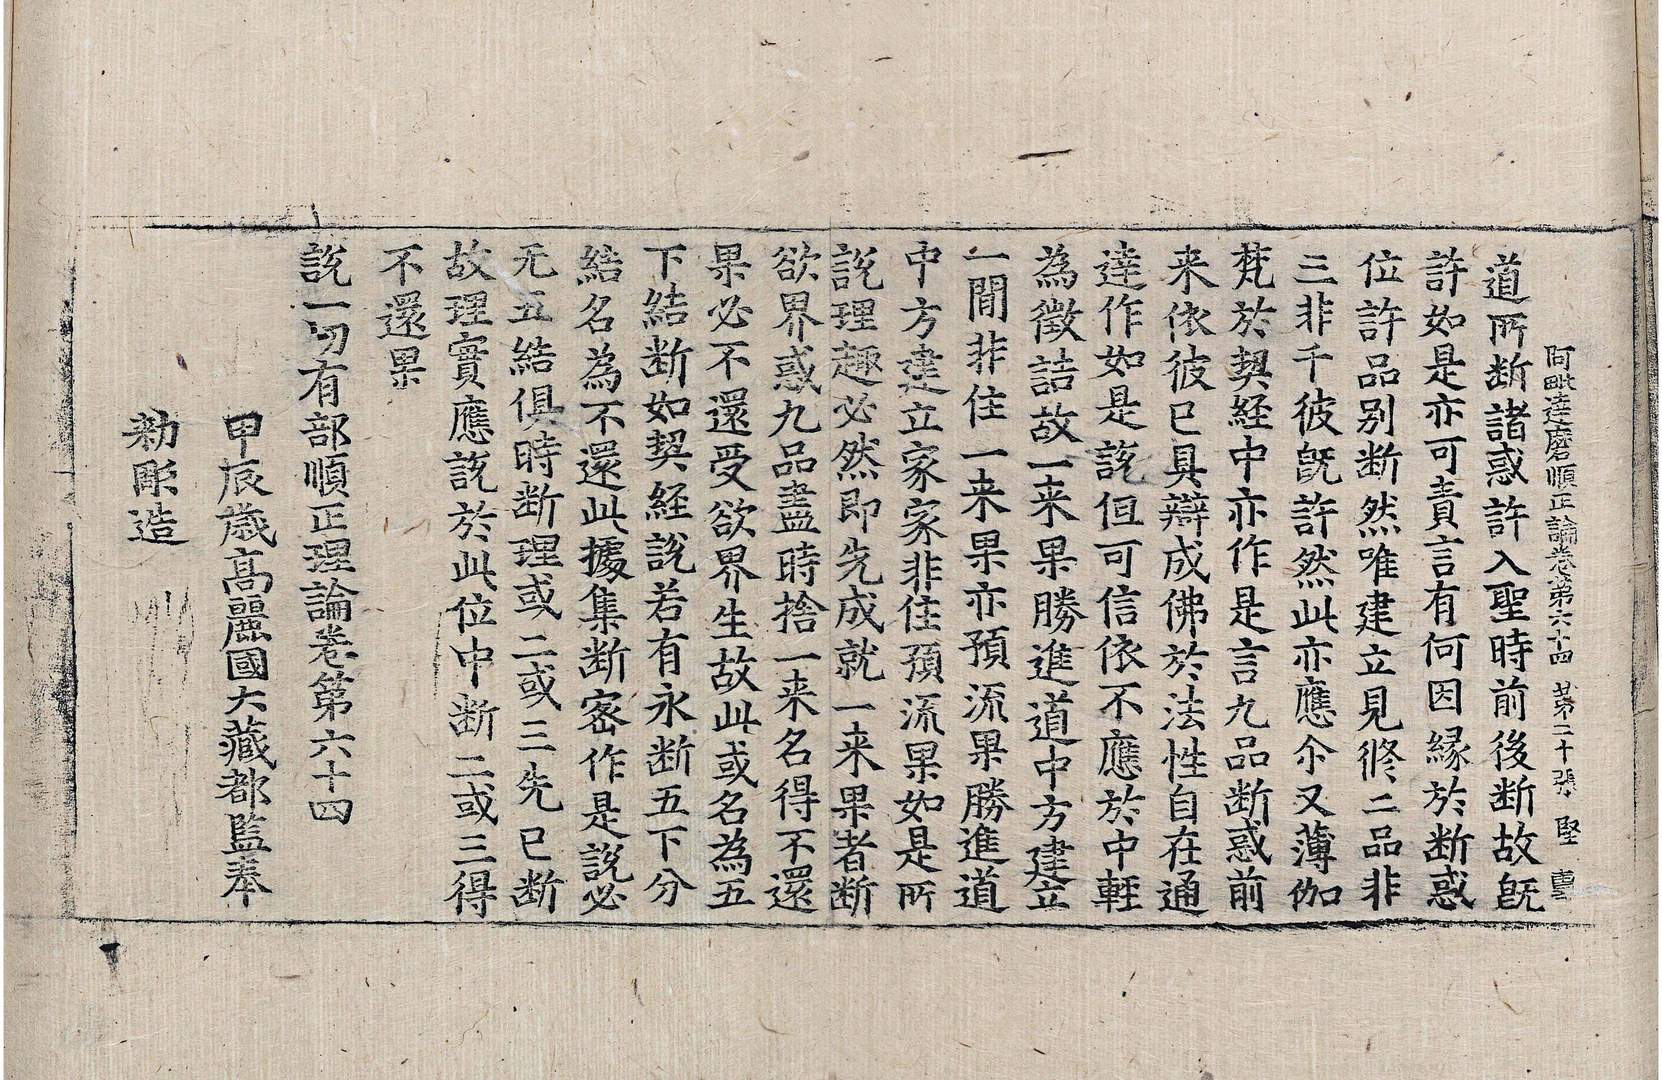 阿毗達磨順正論卷第六十四 第二十張 堅
道所断諸惑許入聖時前後断故旣
許如是亦可責言有何因縁於断惑
位許品别断然唯建立見修二品非
三非千彼旣許然此亦應尒又薄伽
梵於契経中亦作是言九品断惑前
来依彼已具辯成佛於法性自在通
達作如是說但可信依不應於中輕
為徵詰故一来果勝進道中方建立
一間非住一来果亦預流果勝進道
中方建立家家非住預流果如是所
說理趣必然即先成就一来果者断
欲界惑九品盡時捨一来名得不還
果必不還受欲界生故此或名為五
下結断如契経說若有永断五下分
結名為不還此據集断密作是說必
无五結俱時断理或二或三先已断
故理實應說於此位中断二或三得
不還果
說一切有部順正理論卷第六十四
甲辰歲高麗國大藏都監奉
勑彫造